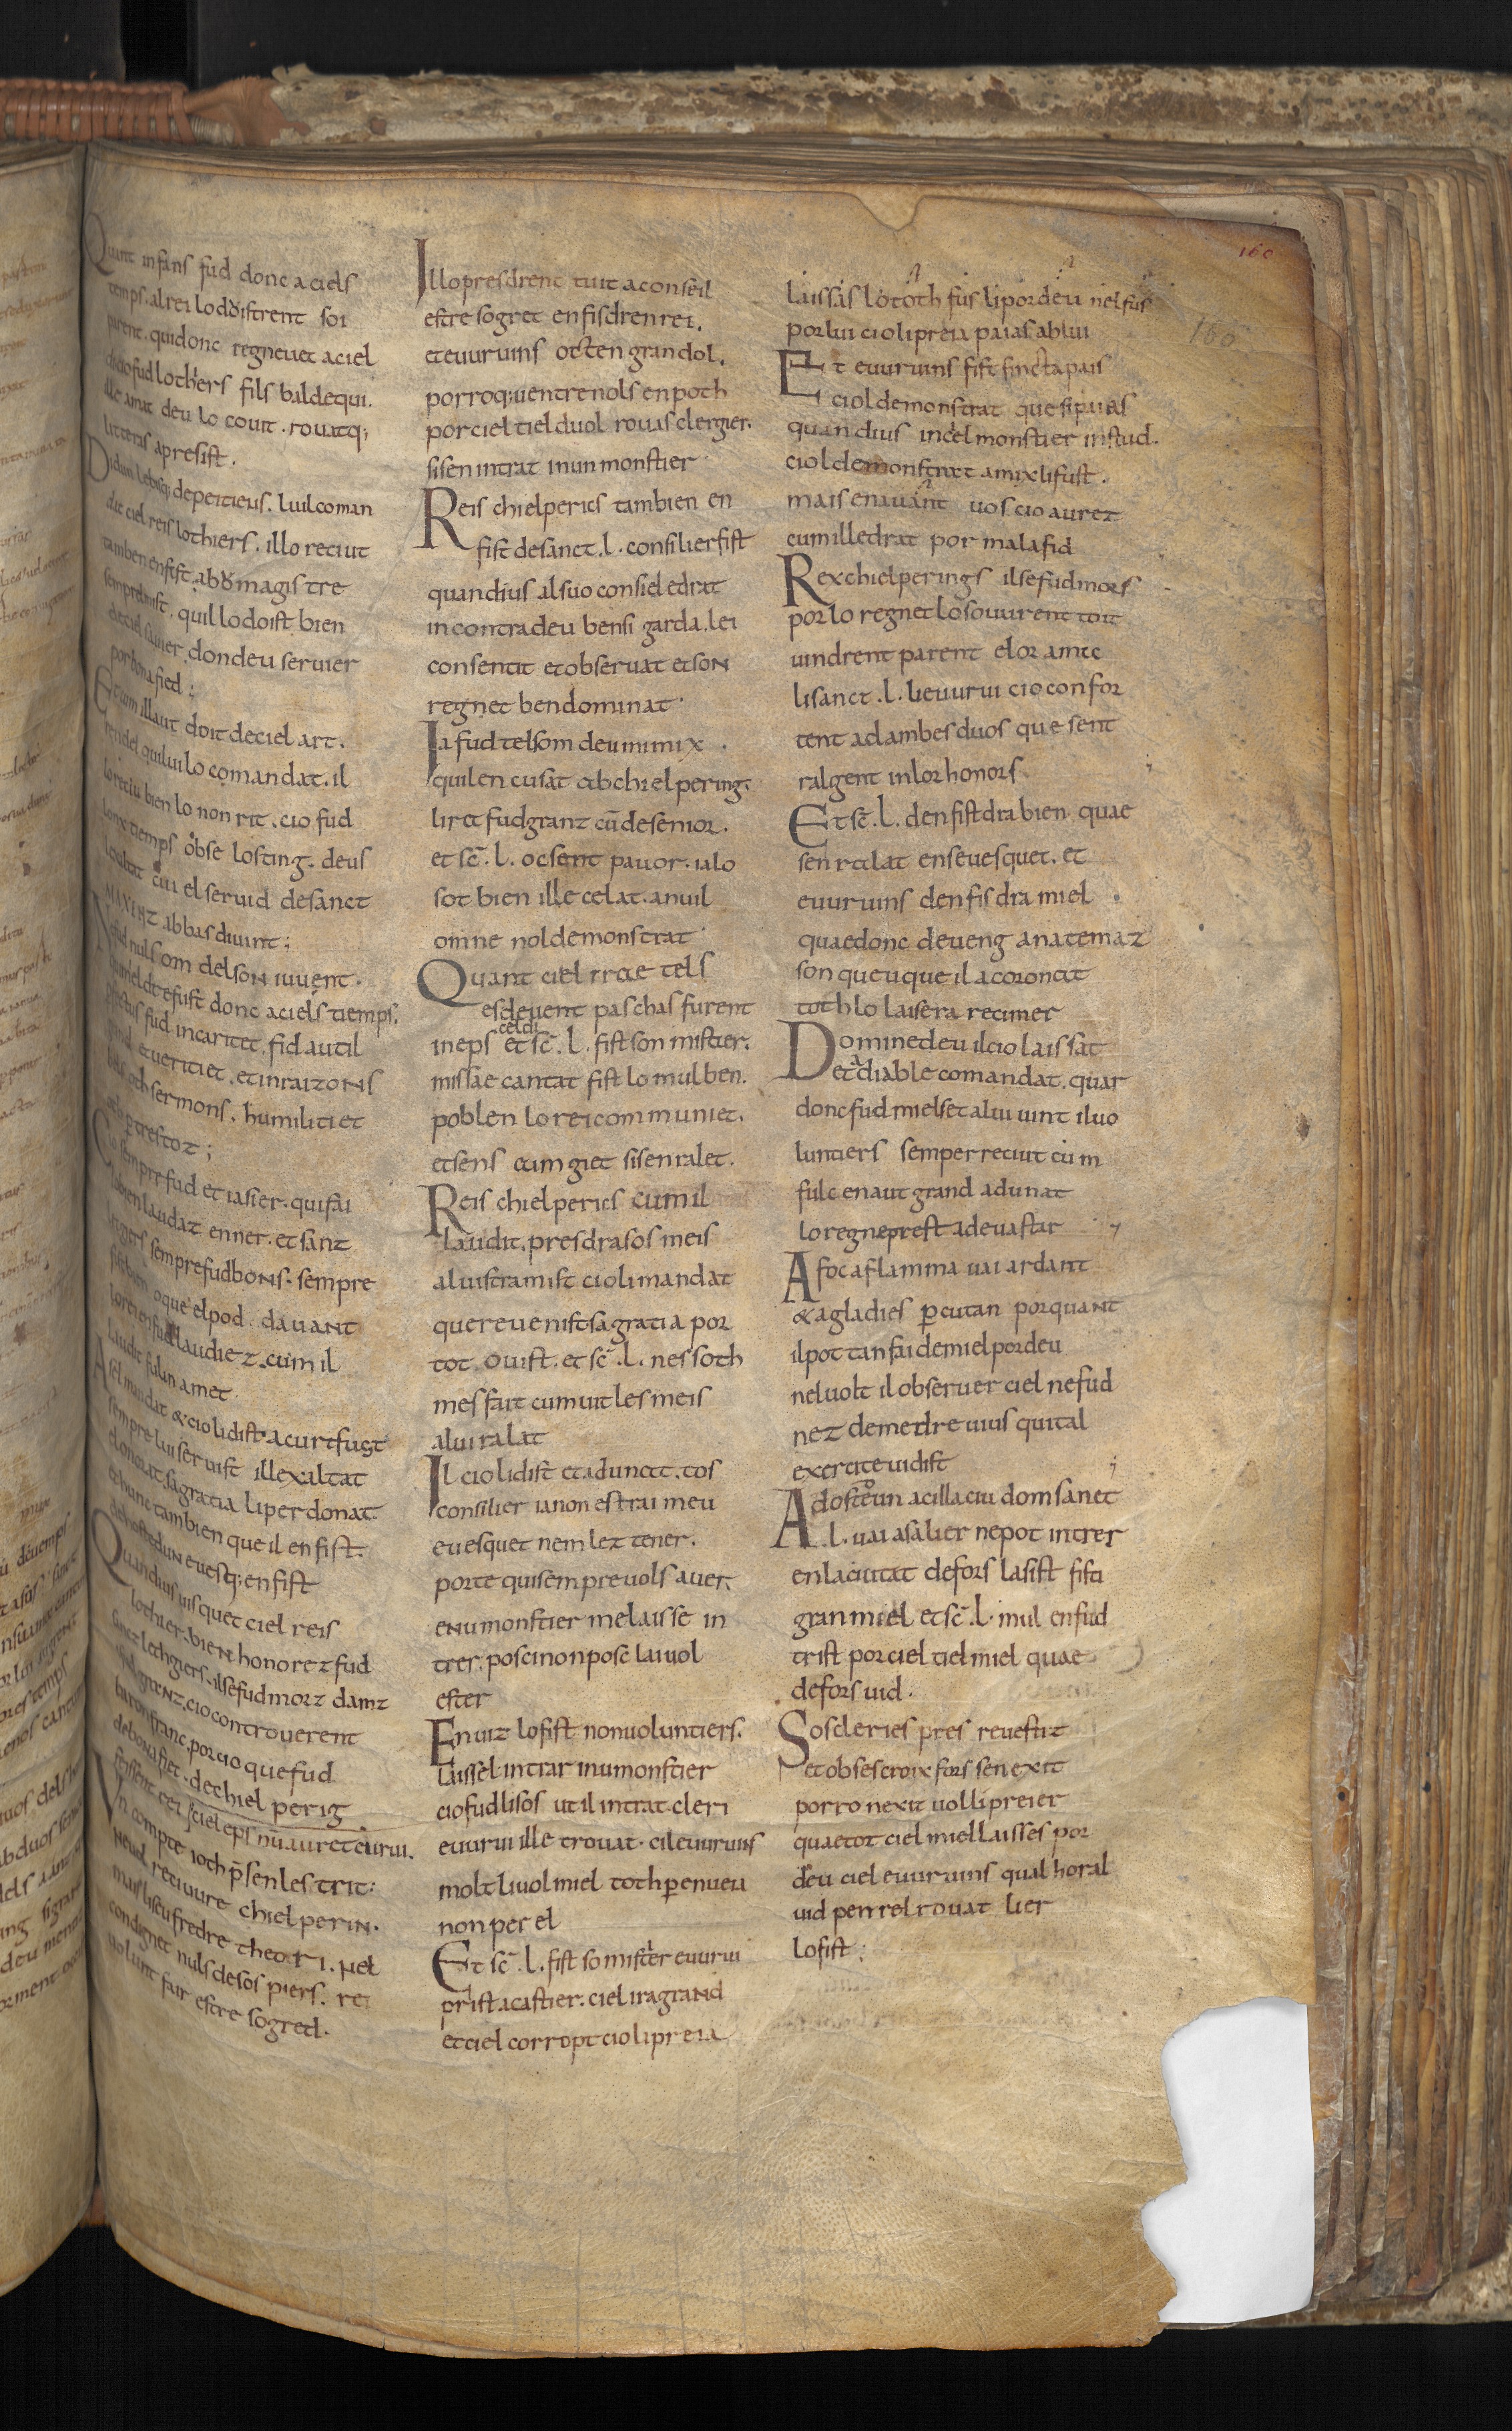 Quant infans fud donc a ciels
temps. al rei lo doistrent soi
parent. qui donc regnevet a ciel
di cio fud lothiers fils baldequi.
ille amat deu lo covit. rovatq;
litteras apresist.
Didun lebisq; de peitieus. lui l coman
dat ciel reis lothiers. illo reciut
tam ben en fist. ab u magistre
semprel mist. quil lo doist bien
de ciel savier dondeu servier
por bona fied;
Et cum il l aut doit de ciel art.
rendel qui lui lo comandat. il
lo reciu bien lo nonrit. cio fud
lonx tiemps ob se los ting. deus
l exaltat cui el servid de sanct
MAXENZ abbas divint;
Ne fud nuls om del son iuvent.
qui mieldre fust donc a ciels tiemps.
perfectus fud in caritet. fid aut il
grand et veritiet. et in raizons
bels oth sermons. humilitiet
oth per trestoz;
Cio sempre fud et ia si er. qui fai
lo bien laudaz en n er. et sanz
letgiers sempre fud bons. sempre
fist bien o que el pod. davant
lo rei en fud laudiez. cum il
l audit fulin amet
A sel mandat & cio li dist. a curt fust
sempre lui servist ille xaltat
e l onorat sa gratia li perdonat.
et hunc tam bien que il en fist.
de hostedun evesq; en fist
Quandius visquet ciel reis
lothier. bien honorez fud
sanct lethgiers. il se fud morz damz
i fud granz. cio controverent
baron franc. por cio que fud
de bona fiet. de chiel perig
feissent rei ciel eps num auret evrui.
Un compte ioth pres en l estrit:
ne vol reciwre chielperin.
mais li seu fredre theotri. nel
condignet nuls de sos piers. rei
volunt fair estre so gred.
Il lo presdrent tuit a conseil
estre so gret en fisdren rei.
et evvruins ot ten gran dol.
porroq; ventre nols en poth
por ciel tiel duol rovas clergier.
sis en intrat in un monstier
Reis chielperics tam bien en
fist de sanct. l. consilier fist
quandius al suo consiel edrat
incontra deu ben si garda. lei
consentit et observat et son
regnet ben dominat
Ia fud tels om deu inimix
qui l encusat ab chielpering.
l ira fud granz cu de senior.
et sc. l. oc s ent pavor. ia lo
sot bien ille celat. a nuil
omne nol demonstrat
Quant ciel irae tels
esdevent paschas furent
in eps cel di et sc. l. fist son mistier.
missae cantat fist lo mul ben.
pobl en lo rei communiet.
et sens cumgiet sis en ralet.
Reis chielperics cum il
l audit. presdra sos meis
a lui s tramist cio li mandat
que revenist sa gratia por
tot. ovist. et sc. l. nes soth
mesfait cum vit les meis
a lui ralat
Il cio li dist et adunat. tos
consilier ia non estrai meu
evesquet nem lez tener.
por te qui sempre vols aver.
en u monstier me laisse in
trer. pos ci non posc lai vol
ester
Enviz lo fist non voluntiers.
laissel intrar in u monstier
cio fud lisos ut il intrat. cleri
evvrui ille trovat. cil evvruins
molt li vol miel toth per enveu
non per el
Et sc. l. fist so mistier evvrui
prist a castier. ciel ira grand
et ciel corropt cio li preia
laissas lo toth fus li por deu nel fus
por lui cio li preia paias ab lui
Et evvruins fist fincta pais
ciol demonstrat que s i paias
quandius in ciel monstier instud.
ciol demonstrat amix li fust.
mais en avant vos cio aurez
cum ill edrat por mala fid
Rex chielperings il se fud mors
por lo regnet lo sowrent toit
vindrent parent e lor amic
li sanct. l. li evvrui cio confor
tent ad ambes duos que s ent
ralgent in lor honors
Et sc. l. den fistdra bien quae
s en ralat en s evesquet. et
evvruins den fisdra miel
quae donc deveng anatemaz
son queu que il a coronat
toth lo laisera recimer
Domine deu il cio laissat
et a diable comandat. quar
donc fud miels et a lui vint il vo
luntiers semper reciut cum
fulc en aut grand adunat
lo regne prest a devastar
A foc a flamma vai ardant
& a gladies percutan por quant
il pot tan fai de miel por deu
nel volt il observer ciel ne fud
nez de medre vius qui tal
exercite vidist
Ad osteun a cilla ciu dom sanct
.l. vai asalier ne pot intrer
en la ciutat defors l asist fist i
gran miel et sc. l. mul en fud
trist por ciel tiel miel quae
defors vid.
Sos cleries pres revestiz
et ob ses croix fors s en exit
porro n exit vol li preier
quae tot ciel miel laisses por
deu ciel evvruins qual horal
vid penrel rovat lier
lo fist;
160
160